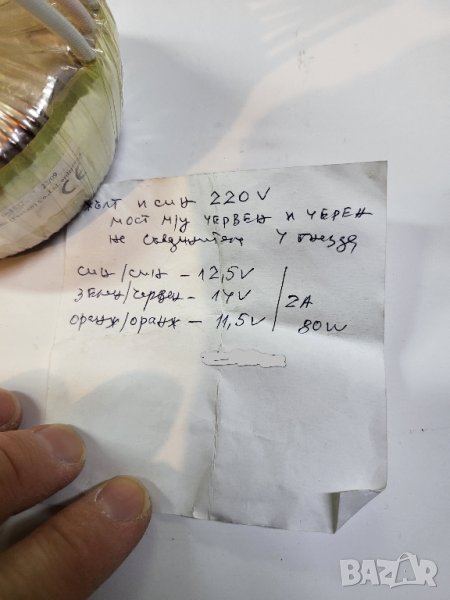 жълт и син 220V
мост м/у червен и черен
не съединител
син/син - 12,5V
зелен/червен - 14V
2A
оранж/оранж - 11,5V
80W
BAZAR